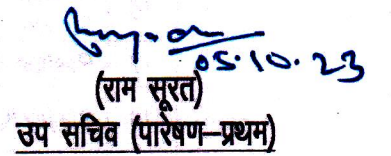 05.10.23
(राम सूरत)
उप सचिव (पारेषण–प्रथम)